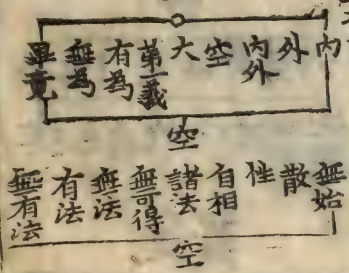 內
外
內外
空
大
第一義
有為
無為
畢竟
空
無始
散
性
自相
諸法
無可得
無法
有法
無有法
空